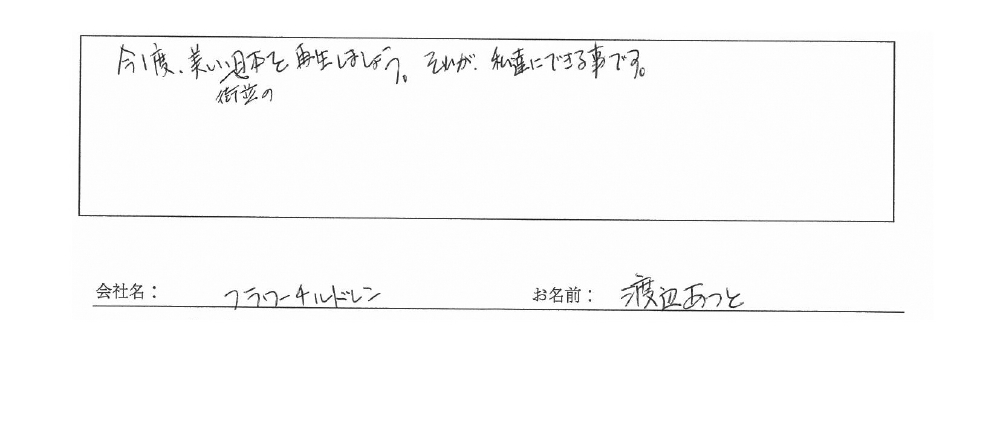 今1度、美しい日本を再生しましょう。それが、私達にできる事です。
街並の
会社名： フラワーチルドレン お名前： 渡辺あつと